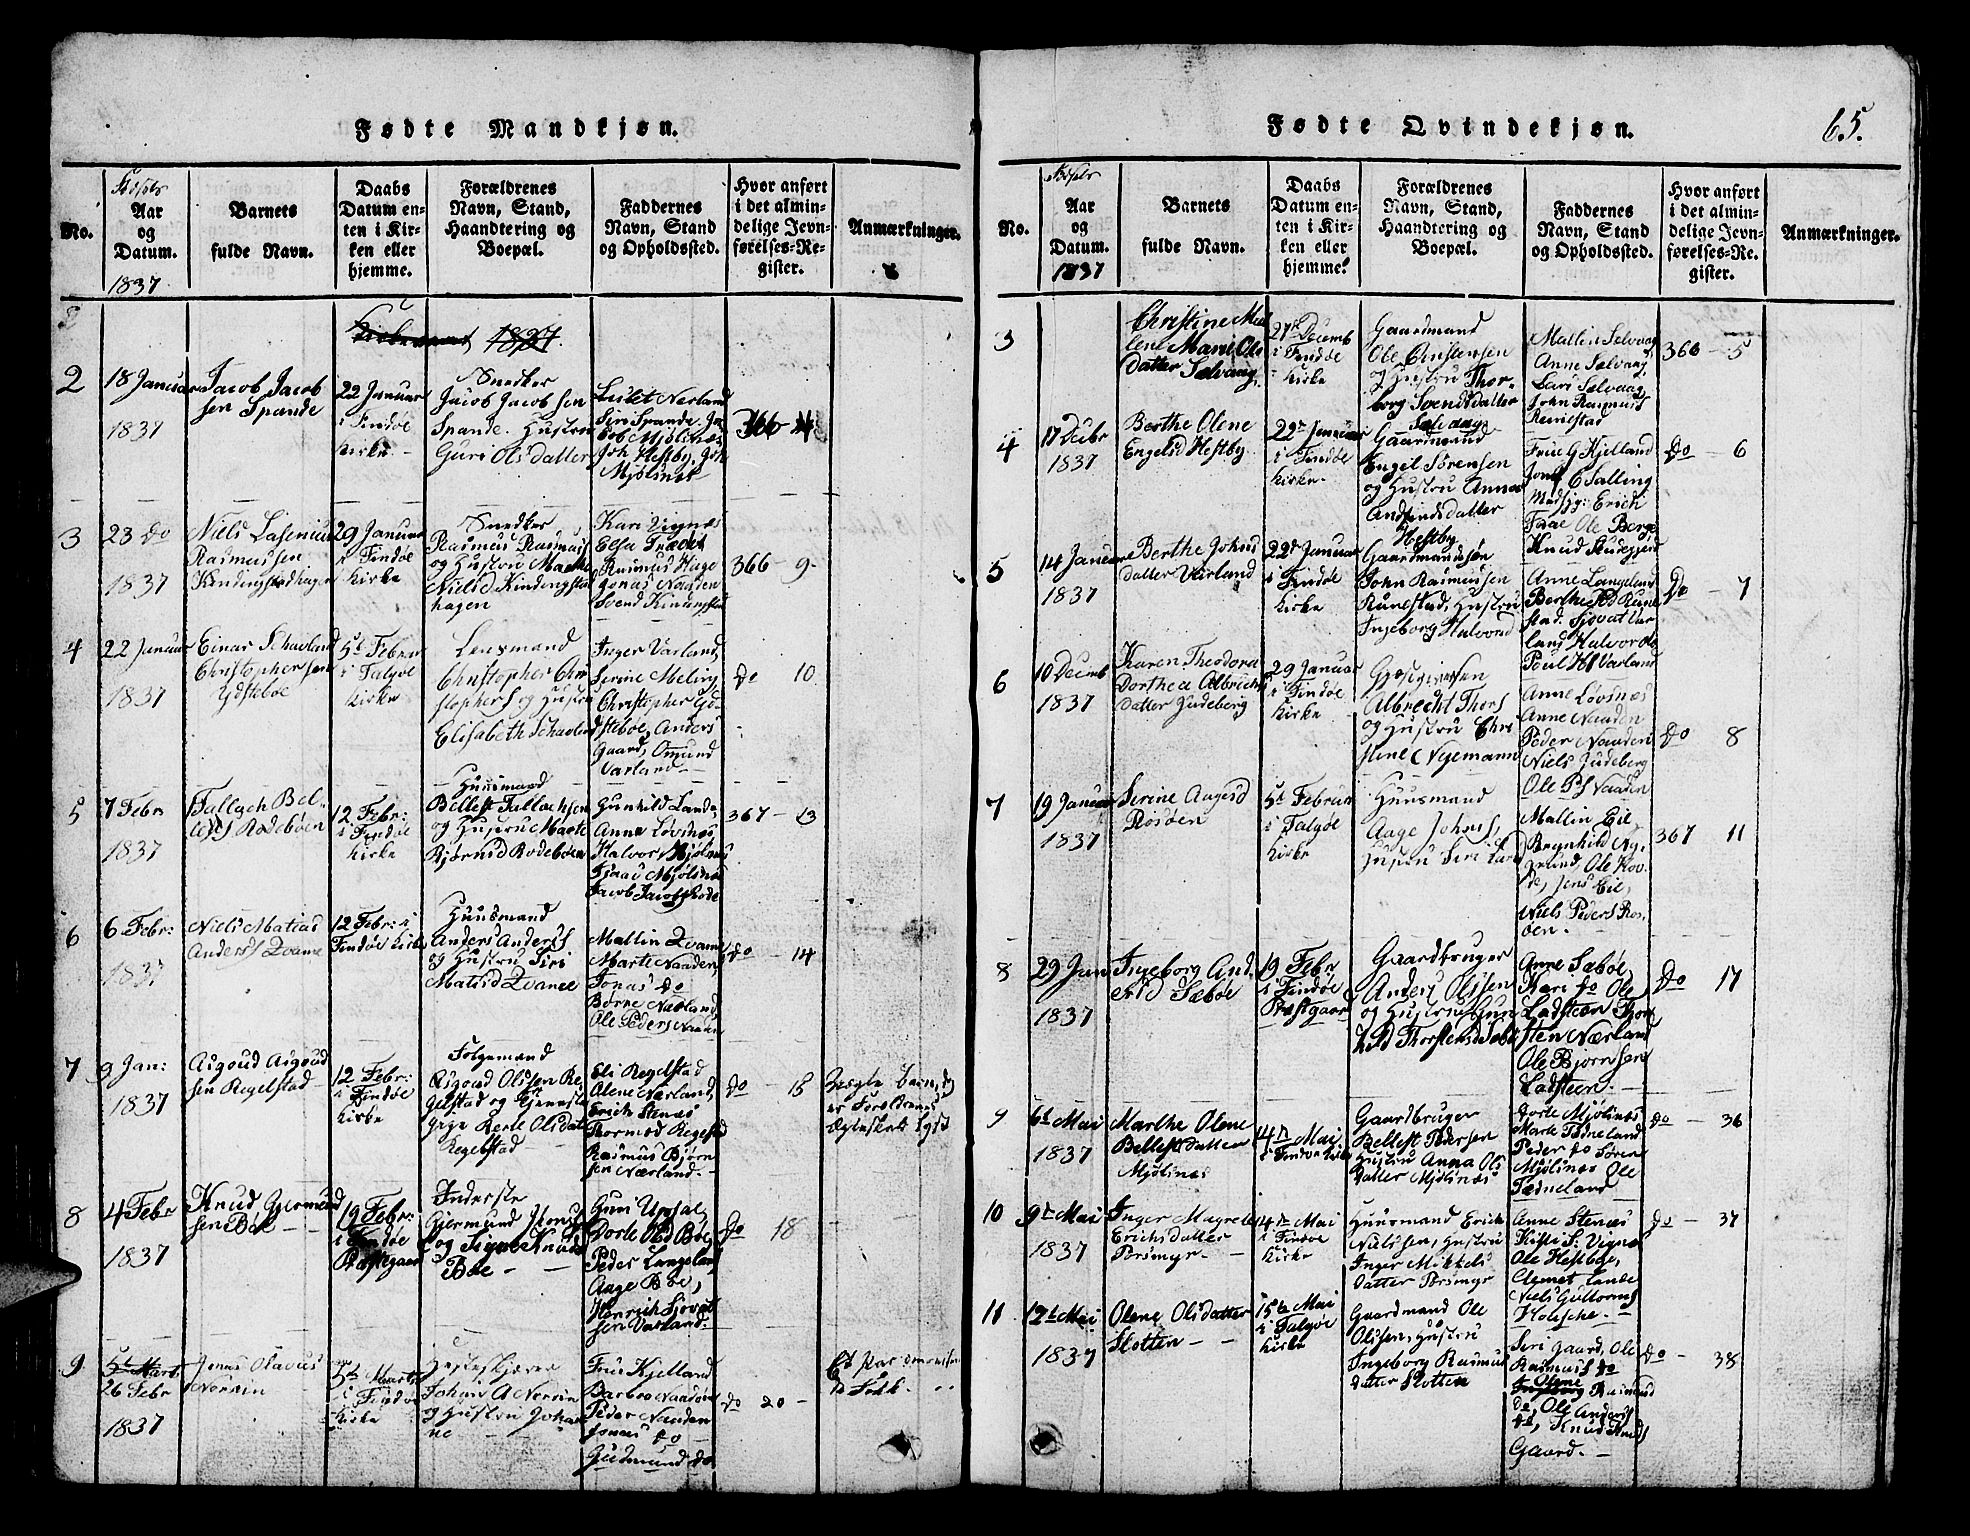 Fødte Mandkjøn.
No.
Aar
og
Datum.
1837
Barnets
fulde Navn.
Daabs
Datum en-
ten i Kir-
ken eller
hjemme.
Forældrenes
Navn, Stand,
Haandtering og
Boepæl.
Faddernes
Navn, Stand
og Opholdssted.
Hvor anført
i det almin-
delige Jevn-
førelses-Re-
gister.
Anmærkninger.
1837
2
18 Januar
1837
Jacob Jacob
sen Spande
22 Januar
i Findøe
Kirke
Snedker
Jacob Jacobsen
Spande. Hustru
Guri Olsdatter
Siri Spande. Ja
cob Mjølsnæs
Joh Hestby, Joh
Mjølsnæs
366 - 4
3
23 do
1837
Niels Lasenius
Rasmussen
Kindingstadhagen
29 Januar
i Findøe
Kirke
Snedker
Rasmus Rasmuss
og Hustru Marthe
Nielsd Kindingsta
hagen
Kari Vignæs
Elsa
Rasmus Hage
Jonas Naaden
Svend Kindingstad
366 - 9
4
22 Januar
1837
Einar Schavland
Christophersen
Ydstebøe
5t Febr
i Talgøe
Kirke
Lensmand
Christopher Chri
stophers og Hustru
Elisabeth Schavland
Inger Varland
Serine Meling
Christopher Yd
stebøe, Anders
Gaard, Omund
Varland
do 10
5
7 Febr
1837
Tallach Bel-
lests Rodebøen
12 Febr:
i Findøe
Kirke
Huusmand
Bellest Tallachsen
og Hustru Marte
Bjørnsd Rodebøen
Gunhild Lande
Anna Løvsnæs
Halvor Mjølsnæs
Mjølsnæs
Jacob Jacobs Rode
367 - 13
6
6 Febr:
1837
Niels Matias
Anders Qvame
12 Febr: i
Findøe Kirke
Huusmand
Anders Anders
og Hustru Siri
Matisd Qvame
Mallin Qvame
Marte Naaden
Jonas do
Børre Nærland
Ole Peders Naaden
do - 14
7
9 Jan:
1837
Asgoud Asgoud
sen Regelstad
12 Febr:
i Findøe
Kirke
Følgemand
Asgoud Olssen Re
gelstad og Tjeneste
Olsdat
Regelstad
Eli Regelstad
Olene Nærland
Erich Stenæs
Thormod Regelstad
Rasmus Bjørn
sen Nærland
do - 15
8
4 Febr
1837
Knud Gjermund
sen Bøe
19 Febr:
i Findøe
Præstegaard
Inderste
Gjermund
og Signe Knuds
Bøe
Guri Upsal
Dorte Olsd Bøe
Peder Langeland
Aage Bøe,
Henrich Sjovat
sen Varland
do 18
9
5t Mart
26 Febr
1837
Jonas Olavus
Norrin
5t Marts
i Findøe
Kirke
Johan A Norrin
og Hustru Johan
ne
Frue Kjelland
Barbro Naaden
Peder Naaden
Jonas do
Gudmund do
do 20
Folk.
Fødte Qvindekjøn.
65.
No.
Aar
og
Datum.
1837
Barnets
fulde Navn.
Daabs
Datum en-
ten i Kir-
ken eller
hjemme.
Forældrenes
Navn, Stand,
Haandtering og
Boepæl.
Faddernes
Navn, Stand
og Opholdssted.
Hvor anført
i det almin-
delige Jevn-
førelses-Re-
gister.
Anmærkninger.
3
Christine Mal
lene Marie Ols
datter Selvaag
27de Decemb
i Findøe
Kirke
Gaardmand
Ole Christensen
og Hustru Thor-
borg Svendsdatter
Selvaag
Mallin Selvaag
Anne Selvaag
Lars Selvaag
John Rasmuss
366 - 5
4
17 Decbr
1837
Berthe Olene
Engelsd Hestby
22de Januar
i Findøe
Kirke.
Gaardmand
Engel Sørensen
og Hustru Anna
datter
Hestby
Frue G Kjelland
C Salling
Erich
Ole Berge
Knud
do - 6
5
14 Januar
1837
Berthe Johns
datter Varland
22de Januar
i Findøe
Kirke
Gaardmandssøn
John Rasmussen
Runestad, Hustru
Ingeborg Halvorsd
Anne Langeland
Berthe Rune
stad. Sjovat Var
land Halvor Ols
Poul Varland
do - 7
6
10 Decemb
1837
Karen Theodora
Dorthea Albrichts
datter Judeberg
29 Januar
i Findøe
Kirke
Albrecht Thors
og Hustru Chri
stine Nyemann
Anne Løvsnæs
Anne Naaden
Peder Naaden
Niels Judeberg
Ole Naaden
do 8
7
19 Januar
1837
Serine Aagesd
Rosøen
5t Februar
i Talgøe
Kirke
Huusmand
Aage Johns,
Hustru Siri Lars
Mallin Eil,
Ragnhild Ny-
grund, Ole
Jens Eil,
Niels Peders Ros-
øen.
367 11
8
29 Jan
1837
Ingeborg And
ersd Sæbøe
19 Febr
i Findøe
Præstgaard
Gaardbruger
Anders Olssen
og Hustru Gun
hild Thorstensd Sæbø
Anne Sæbøe,
Kari do Ole
Ladsteen Thor
sten Nærland
Ole Bjørnsen
Ladsteen.
do 17
9
6t Mai
1837
Marthe Olene
Bellestdatter
Mjølsnæs
14de Mai
i Findøe Kirke
Gaardbruger
Bellest Pedersen
Hustru Anna Ols
datter Mjølsnæs
Dorte Mjølsnæs
Marte Tedneland
Peder do Søren
Mjølsnæs Ole
Tedneland
do - 36
10
9de Mai
1837
Inger Magrete
Erichsdatter
Porsmyr
14de Mai
i Findøe
Kirke
Huusmand Erich
Nielssen, Hustru
Inger Mikkels
datter Porsmyr
Anne Stenæs
Kisti S: Vignæs
Ole Hestbye,
Clemet Lande
Niels Guttorms
do - 37
11
12te Mai
1837
Olene Olsdatter
Slotten
15de Mai
i Talgøe
Kirke
Gaardmand Ole
Olssen, Hustru
Ingeborg Rasmus
datter Slotten
Siri Gaard, Ole
Rasmuss do
Olene
Ingeborg Rasmusd
do, Ole Anders
do, Knud Knuds
Gaard.
do - 38